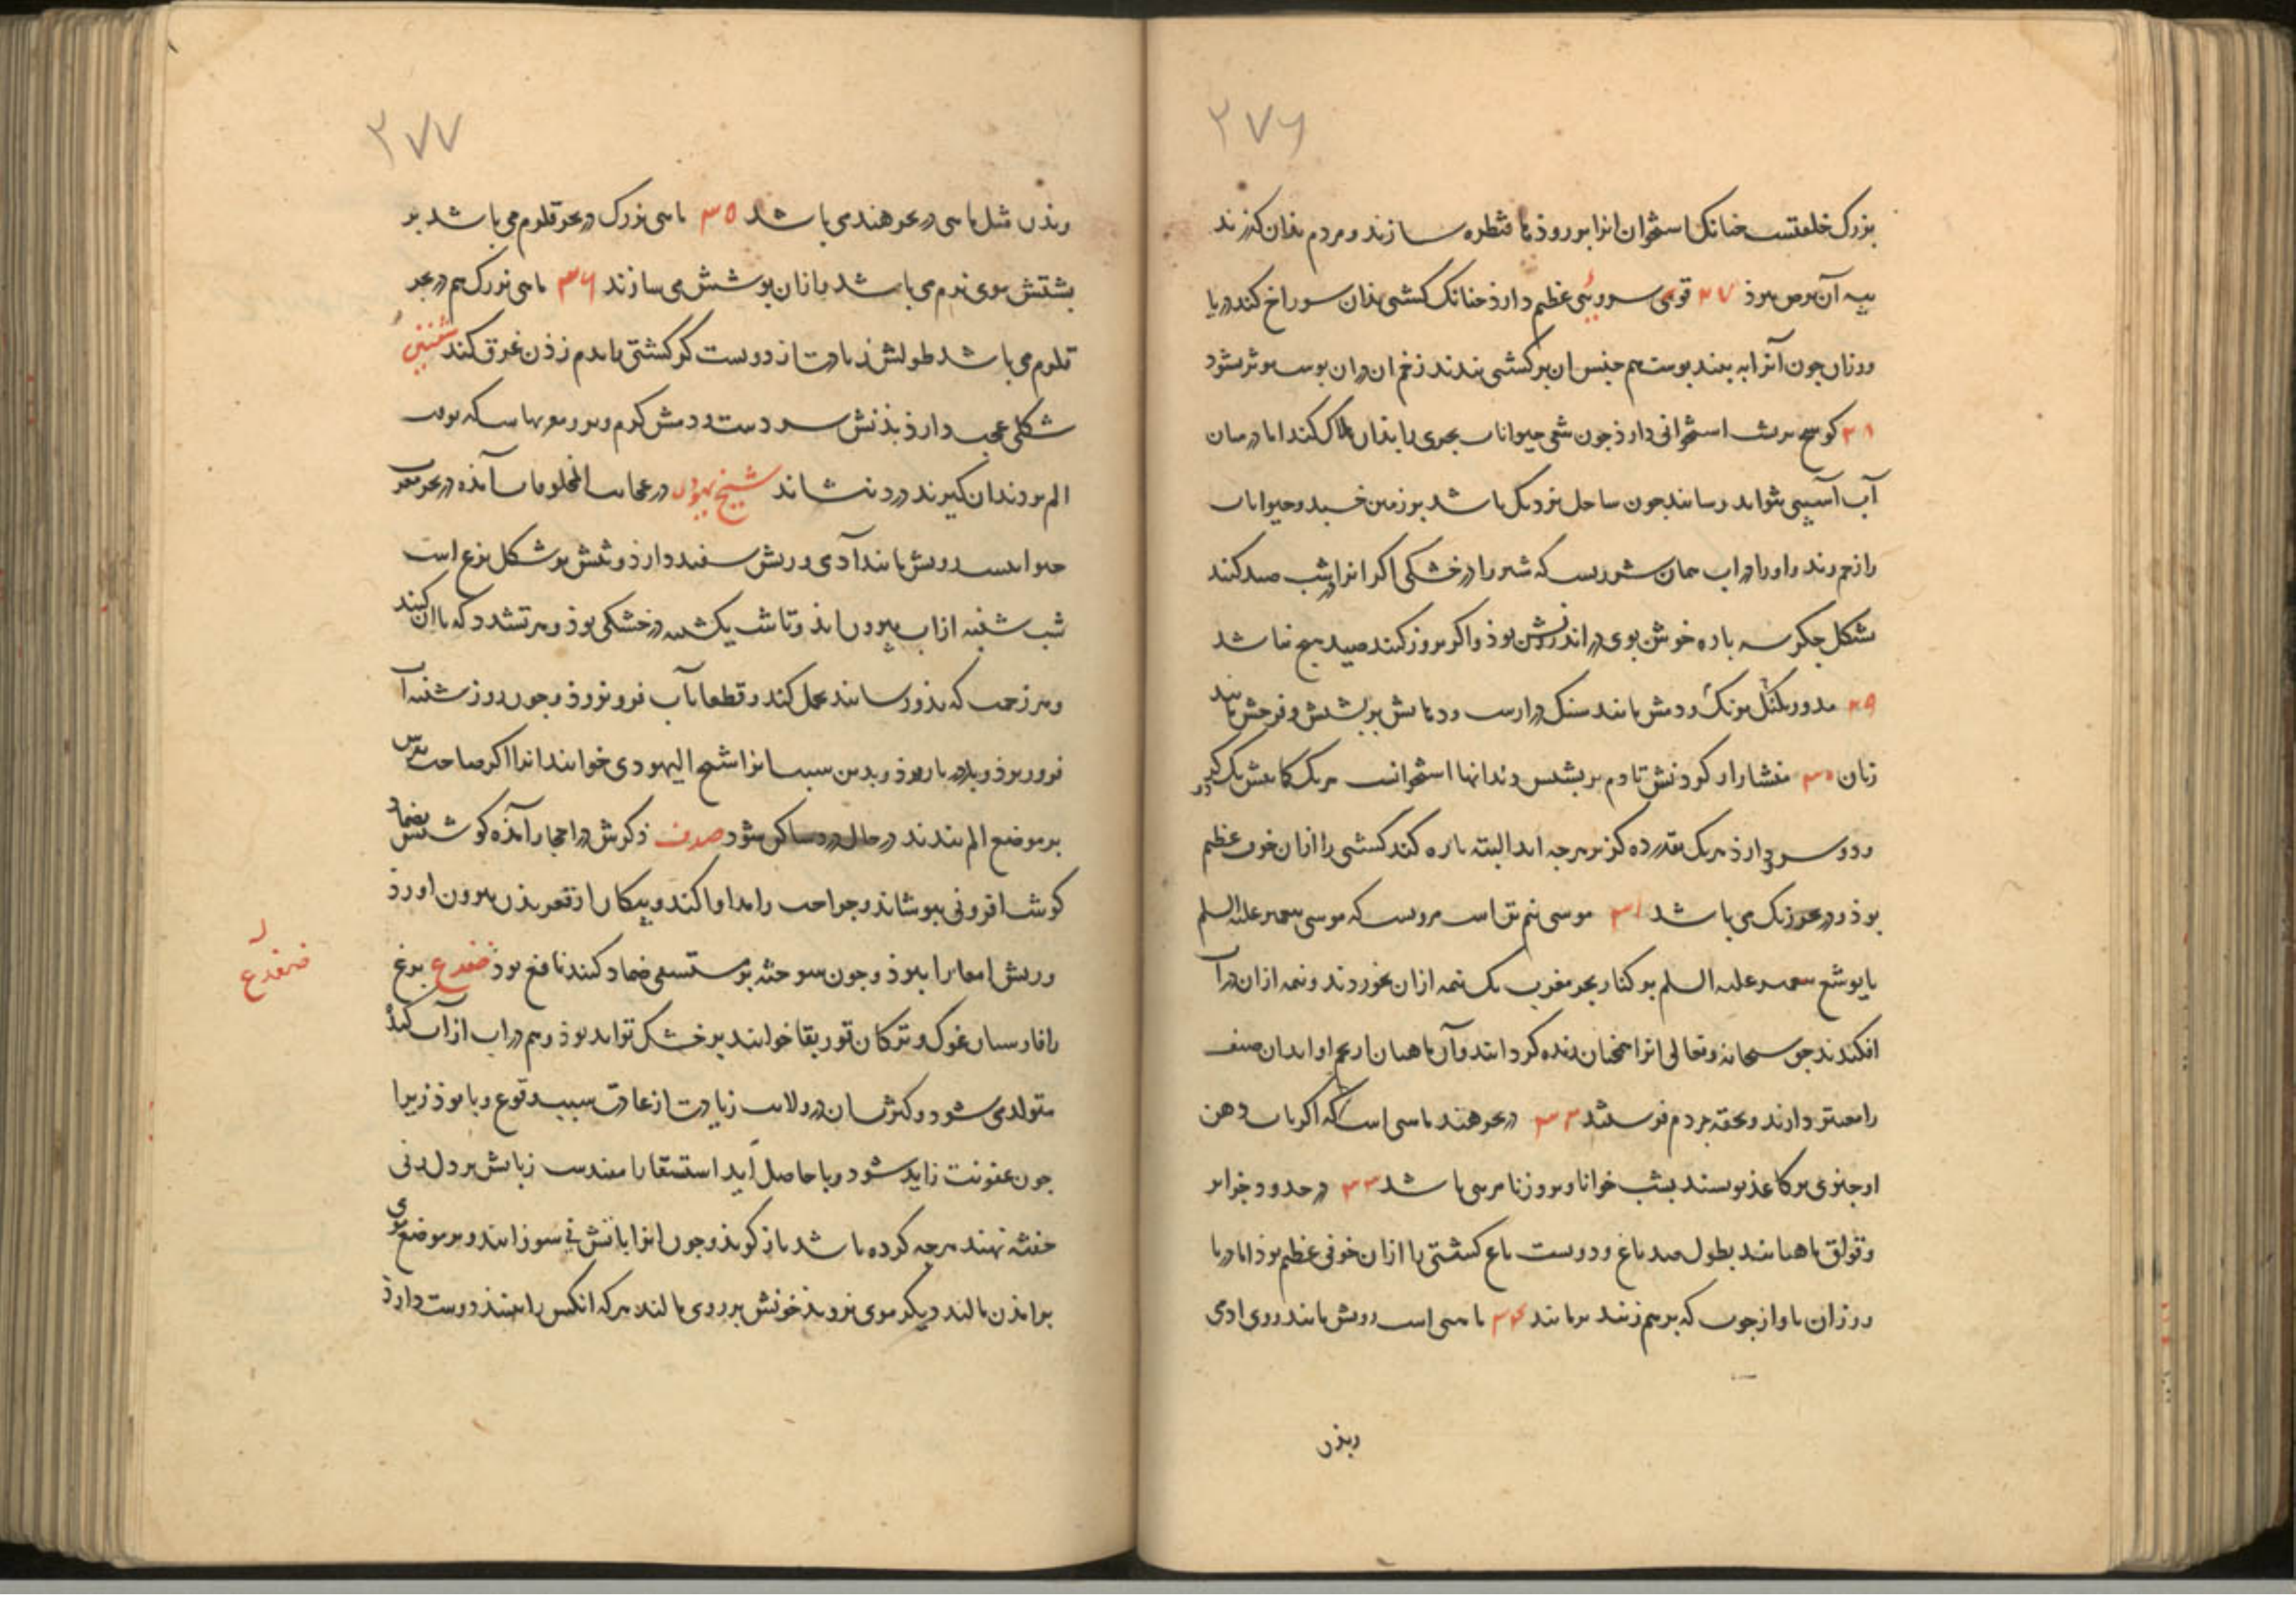 ۲۷۶
بزرک خلقتست جنانک استخوان انرا بر روذها قنطره سازند و مردم بذان کذرند
بیه آن برص برذ ۲۷ قوقی سرویی عظیم دارذ جنانک کشتی بذان سوراخ کند دریا
ورزان جون آنرا به بینند بوست هم جنس ان بر کشتی بندند زخم ان دران بوست موثر نشود
۲۸ کوسج بر استخوانی دارذ جون حیوانات بحری را بذان هلاک کند اما در میان
آب آسیبی نتواند رسانید جون ساحل نزدیک باشد بر زمین خسبد و حیوانات
را زجر وند و او را در اب جنان شوریست که شیر را در خشکی اکر انرا بشب صید کنند
شکل جکر سه باره خوش بوی در اندرونش بوذ و اکر بروز کنند صید هیج نباشد
۲۹ مدور بشکل دمش مانند سنک دراز است و دهانش بر بشتش و فرجش مانند
زنان ۳۰ منشار از کردنش تا دم بر بشتش دندانها استخوانست هر یک کما بیش یک کز
و دو سرو دارذ هر یک بقدر ده کز بر هرجه اید البته باره کند کشتی را ازان خوف عظیم
بوذ و در بحر زنک می باشد ۳۱ موسی نیم تن است مرویست که موسی بیغمبر علیه السلم
با یوشع بیغمبر علیه السلم بر کنار بحر مغرب یک نیمه ازان بخوردند و نیمه ازان در آب
افکندند حق سبحانه و تعالی انرا همجنان زنده کردانید و آن ماهیان از تخم او اند ان صنف
را معتبر دارند و تحفه بمردم فرستند ۳۲ در بحر هند ماهی است که اکر باب دهن
او جیزی بر کاغذ نویسند بشب خوانا و بروز نا مرئی باشد ۳۳ در حدود جزایر
وقواق ماهیانند بطول صد باع و دویست باع کشتی را ازان خوفی عظیم بوذ اما دریا
ورزان باواز جوب که بر هم زنند برمانند ۳۴ ماهی است رویش مانند روی ادمی
وبذن
۲۷۷
وبذن مثل ماهی در بحر هند می باشد ۳۵ ماهی بزرک در بحر قلزم می باشد بر
بشتش موی نرم می باشد و ازان بوشش می سازند ۳۶ ماهی بزرک هم در بحر
قلزم می باشد طولش زیادت از دویست کز کشتی با بدم زذن غرق کند شفنین
شکلی عجب دارذ بذنش سردست و دمش کرم و بر
الم بر دندان کیرند درد بنشاند شیخ یهودی در عجایب المخلوقات آمذه در بحر مغرب
حیوانیست رویش مانند آدمی و ریش سفید دارذ و تنش بر شکل بزغ است
شب شنبه از اب بیرون اید و تا شب یکشنبه در خشکی بوذ و هر تشدد که با ان کنند
و هر زحمت که بذو رسانند تحمل کند و قطعا بآب فرو نروذ و جون روز شنبه آب
فرو روذ و بدین سبب انرا شیخ الیهودی خوانند انرا اکر صاحب نقرس
بر موضع الم بندند در حال درد ساکن شود صدف ذکرش در احجار آمذه کوشتش بضماد
کوشت افزونی ببوشاند و جراحت را مداوا کند و بیکان از قعر بذن بیرون اورذ
و ریش امعا را ببرذ و جون سوخته بر مستسقی ضماد کنند نافع بوذ ضفدع بزغ
ضفدع
را فارسیان غوک و ترکان قوربقا خوانند بر خشک تواند بوذ و هم در اب از آب کنده
متولد می شود و کثرتشان در ولایت زیادت از عادت سبب وقوع وبا بوذ زیرا
جون عفونت زاید شود وبا حاصل اید استسقا را مفیدست زبانش بر دل زنی
خفته نهند هرجه کرده باشد باز کویذ و جون انرا باتش نی سوزانند و بر موضع موی
براندن مالند دیکر موی نرویذ خونش بر روی مالند هر که انکس را بیند دوست دارذ